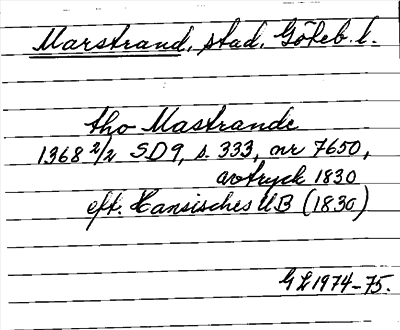 Marstrand, stad. Göteb. l.
tho Mastrande
1368 2/2 SD 9, s. 333, nr 7650,
avtryck 1830
eft. Hansisches UB (1830)
GL 1974-75.